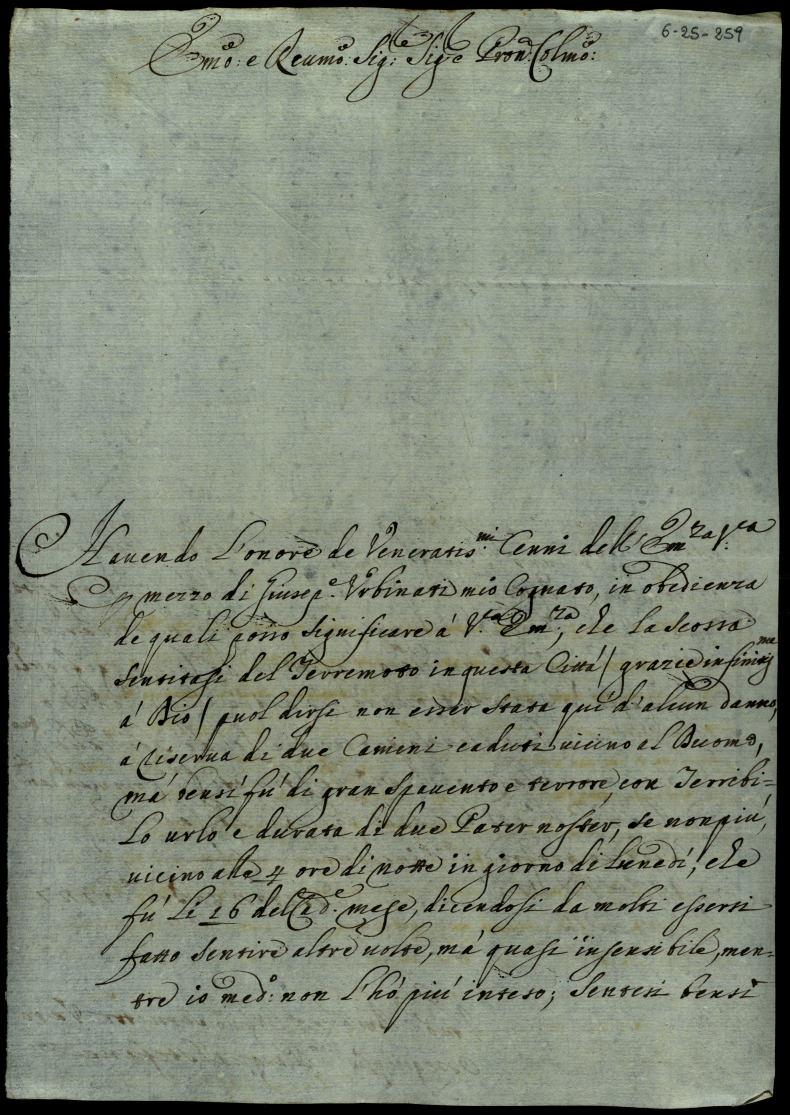 6-25-259
Emo: e Reumo: Sig:r Sig:e Pron Colmo:
Hauendo l'onore de Veneratis:mi Cenni dell' Em:za V:ra
p mezzo di Giusep:e Vrbinati mio Cognato, in obedienza
de quali posso significare á V:ra Em:za, che la scossa
sentitasi del Terremoto in questa Cittá / grazie infinitis:me
á Dio / puol dirsi non esser stata quí d'alcun danno,
á riserua di due Camini caduti uicino al Duomo,
má bensí fú di gran spauento e terrore con Terribi=
lo urlo e durata di due Pater noster, se non piú,
uicino alle 4 ore di notte in giorno di Lunedí, che
fú li 16 del cad:e mese, dicendosi da molti essersi
fatto sentire altre uolte, má quasi insensibile, men=
tre io med:o non l'hó piú inteso; Sentesi bensí